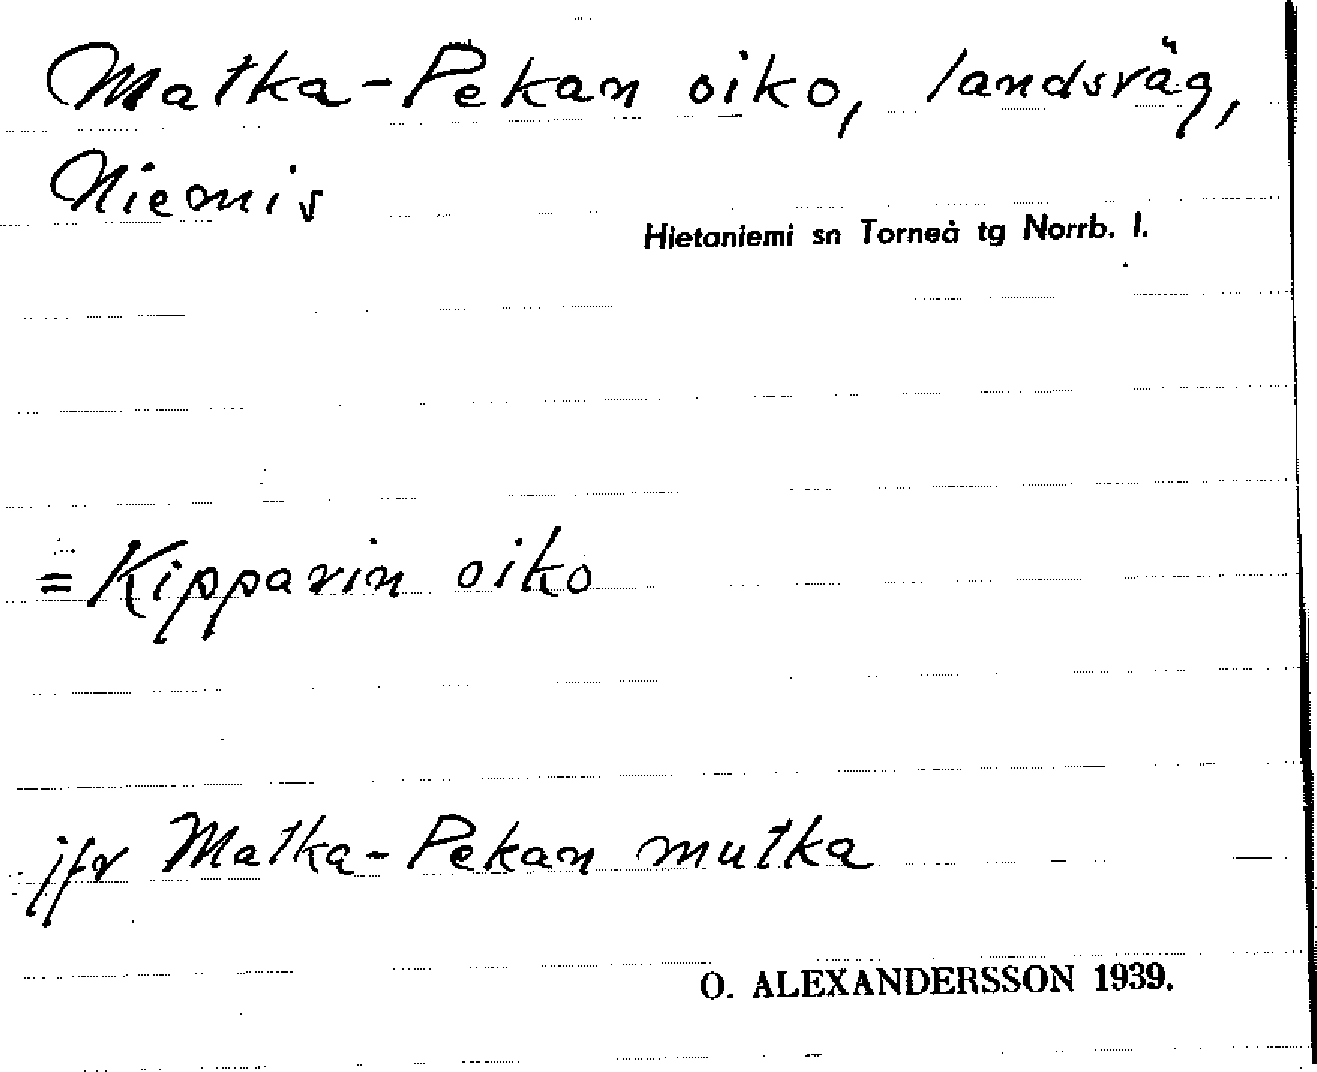 Matka-Pekan oiko, landsväg,
Niemis
Hietaniemi sn Torneå tg Norrb. l.
= Kipparin oiko
jfr Matka-Pekan mutka
O. ALEXANDERSSON 1939.